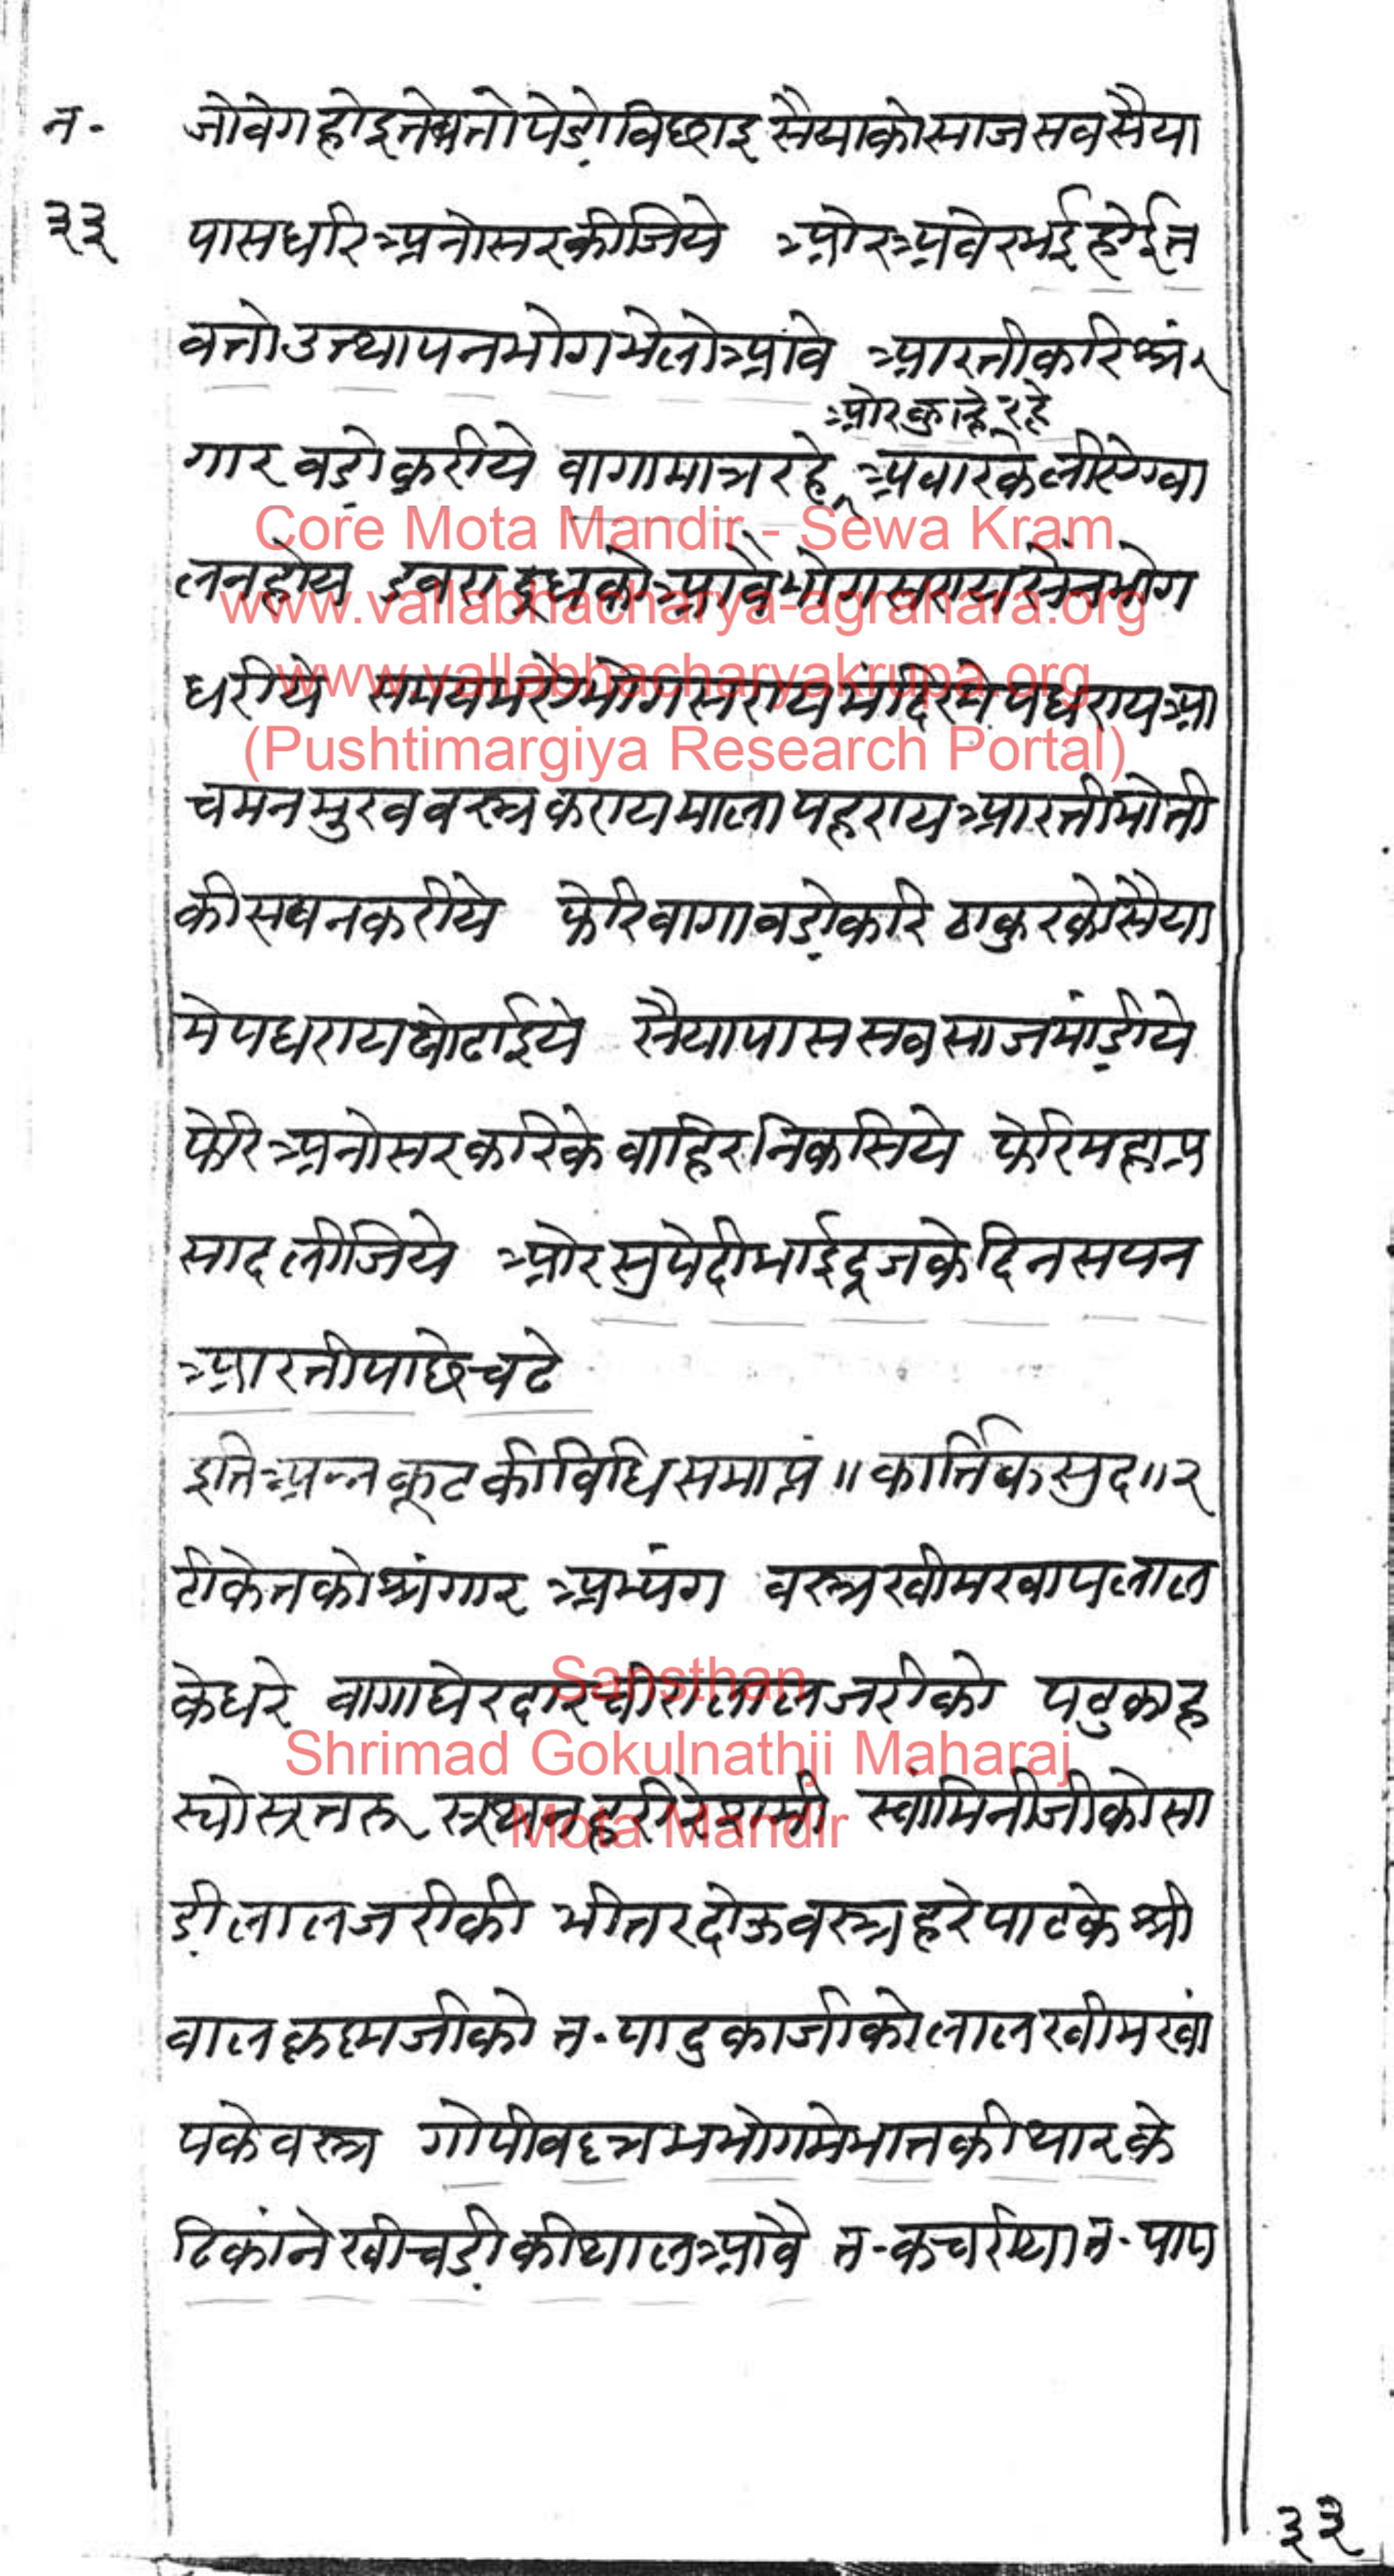 न॰
३३
जोवेग होइ तेब तो पेडो विछाइ सैयाको साज सब सैया
पास धरि अनोसर कीजिये ओर अवेर भई होई त
व तो उत्थापन भोग भेलो आवे आरती करि श्रं
ओर कुल्हे रहे
गार वडो करीये वागा मात्र रहे अवारके लीए ग्वा
ल न होय डबरा दूधको आवै भोग सराय सेन भोग
धरीये समय भरे भोग सराय मंदिरमे पधराय आ
चमन मुखवस्त्र कराय माला पहराय आरती मोती
की सयन करीये फेरि वागा वडो करि ठाकुरको सैया
मे पधराय पोढाईये सैया पास सब साज मांडीये
फेरि अनोसर करिके वाहिर निकसिये फेरि महाप्र
साद लीजिये ओर सुपेदी भाईदूजके दिन सयन
आरती पाछे चढे
इति अन्नकूटकी विधि समाप्तं ॥ कार्त्तिक सुद ॥ २
टीकेतको श्रंगार अभ्यंग वस्त्र खीमखाप लाल
के धरे वागा घेरदार चीरा लाल जरीको पटुका ह
स्यो सूतरू सूथन हरी रेशमी स्वांमिनीजीको सा
डी लाल जरीकी भीतर दोऊ वस्त्र हरे पाटके श्री
वालकृष्णजीको त॰ पादुकाजीको लाल खीमखां
पके वस्त्र गोपीवल्लभ भोगमे भातकी थारके
ठिकांने खीचडीकी थाल आवै त॰ कचरीया त॰ पाप
३३
Core Mota Mandir - Sewa Kram
www.vallabhacharya-agrahara.org
www.vallabhacharyakrupa.org
(Pushtimargiya Research Portal)
Sansthan
Shrimad Gokulnathji Maharaj
Mota Mandir